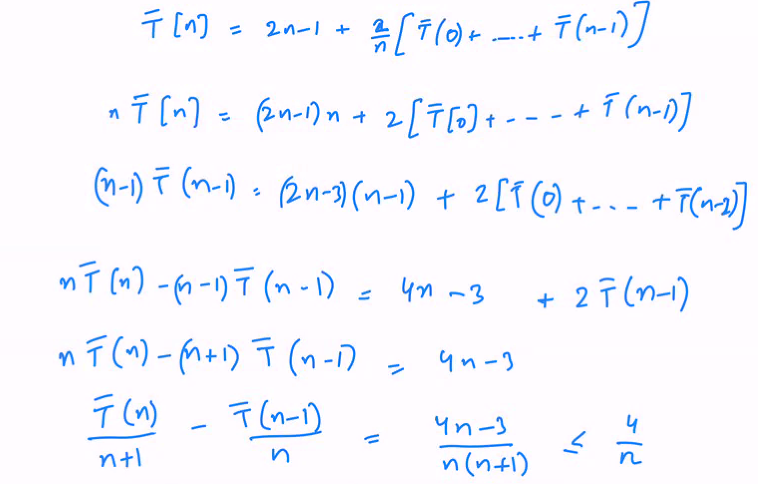 T̄[n] = 2n-1 + 2/n [T̄(0)+ .....+ T̄(n-1)]
n T̄[n] = (2n-1)n + 2[T̄[0]+ - - - + T̄(n-1)]
(n-1) T̄(n-1) = (2n-3)(n-1) + 2[T̄(0) +... + T̄(n-2)]
nT̄(n) -(n-1)T̄(n-1) = 4n-3 + 2T̄(n-1)
nT̄(n)-(n+1) T̄(n-1) = 4n-3
T̄(n)/(n+1) - T̄(n-1)/n = (4n-3)/(n(n+1)) ≤ 4/n